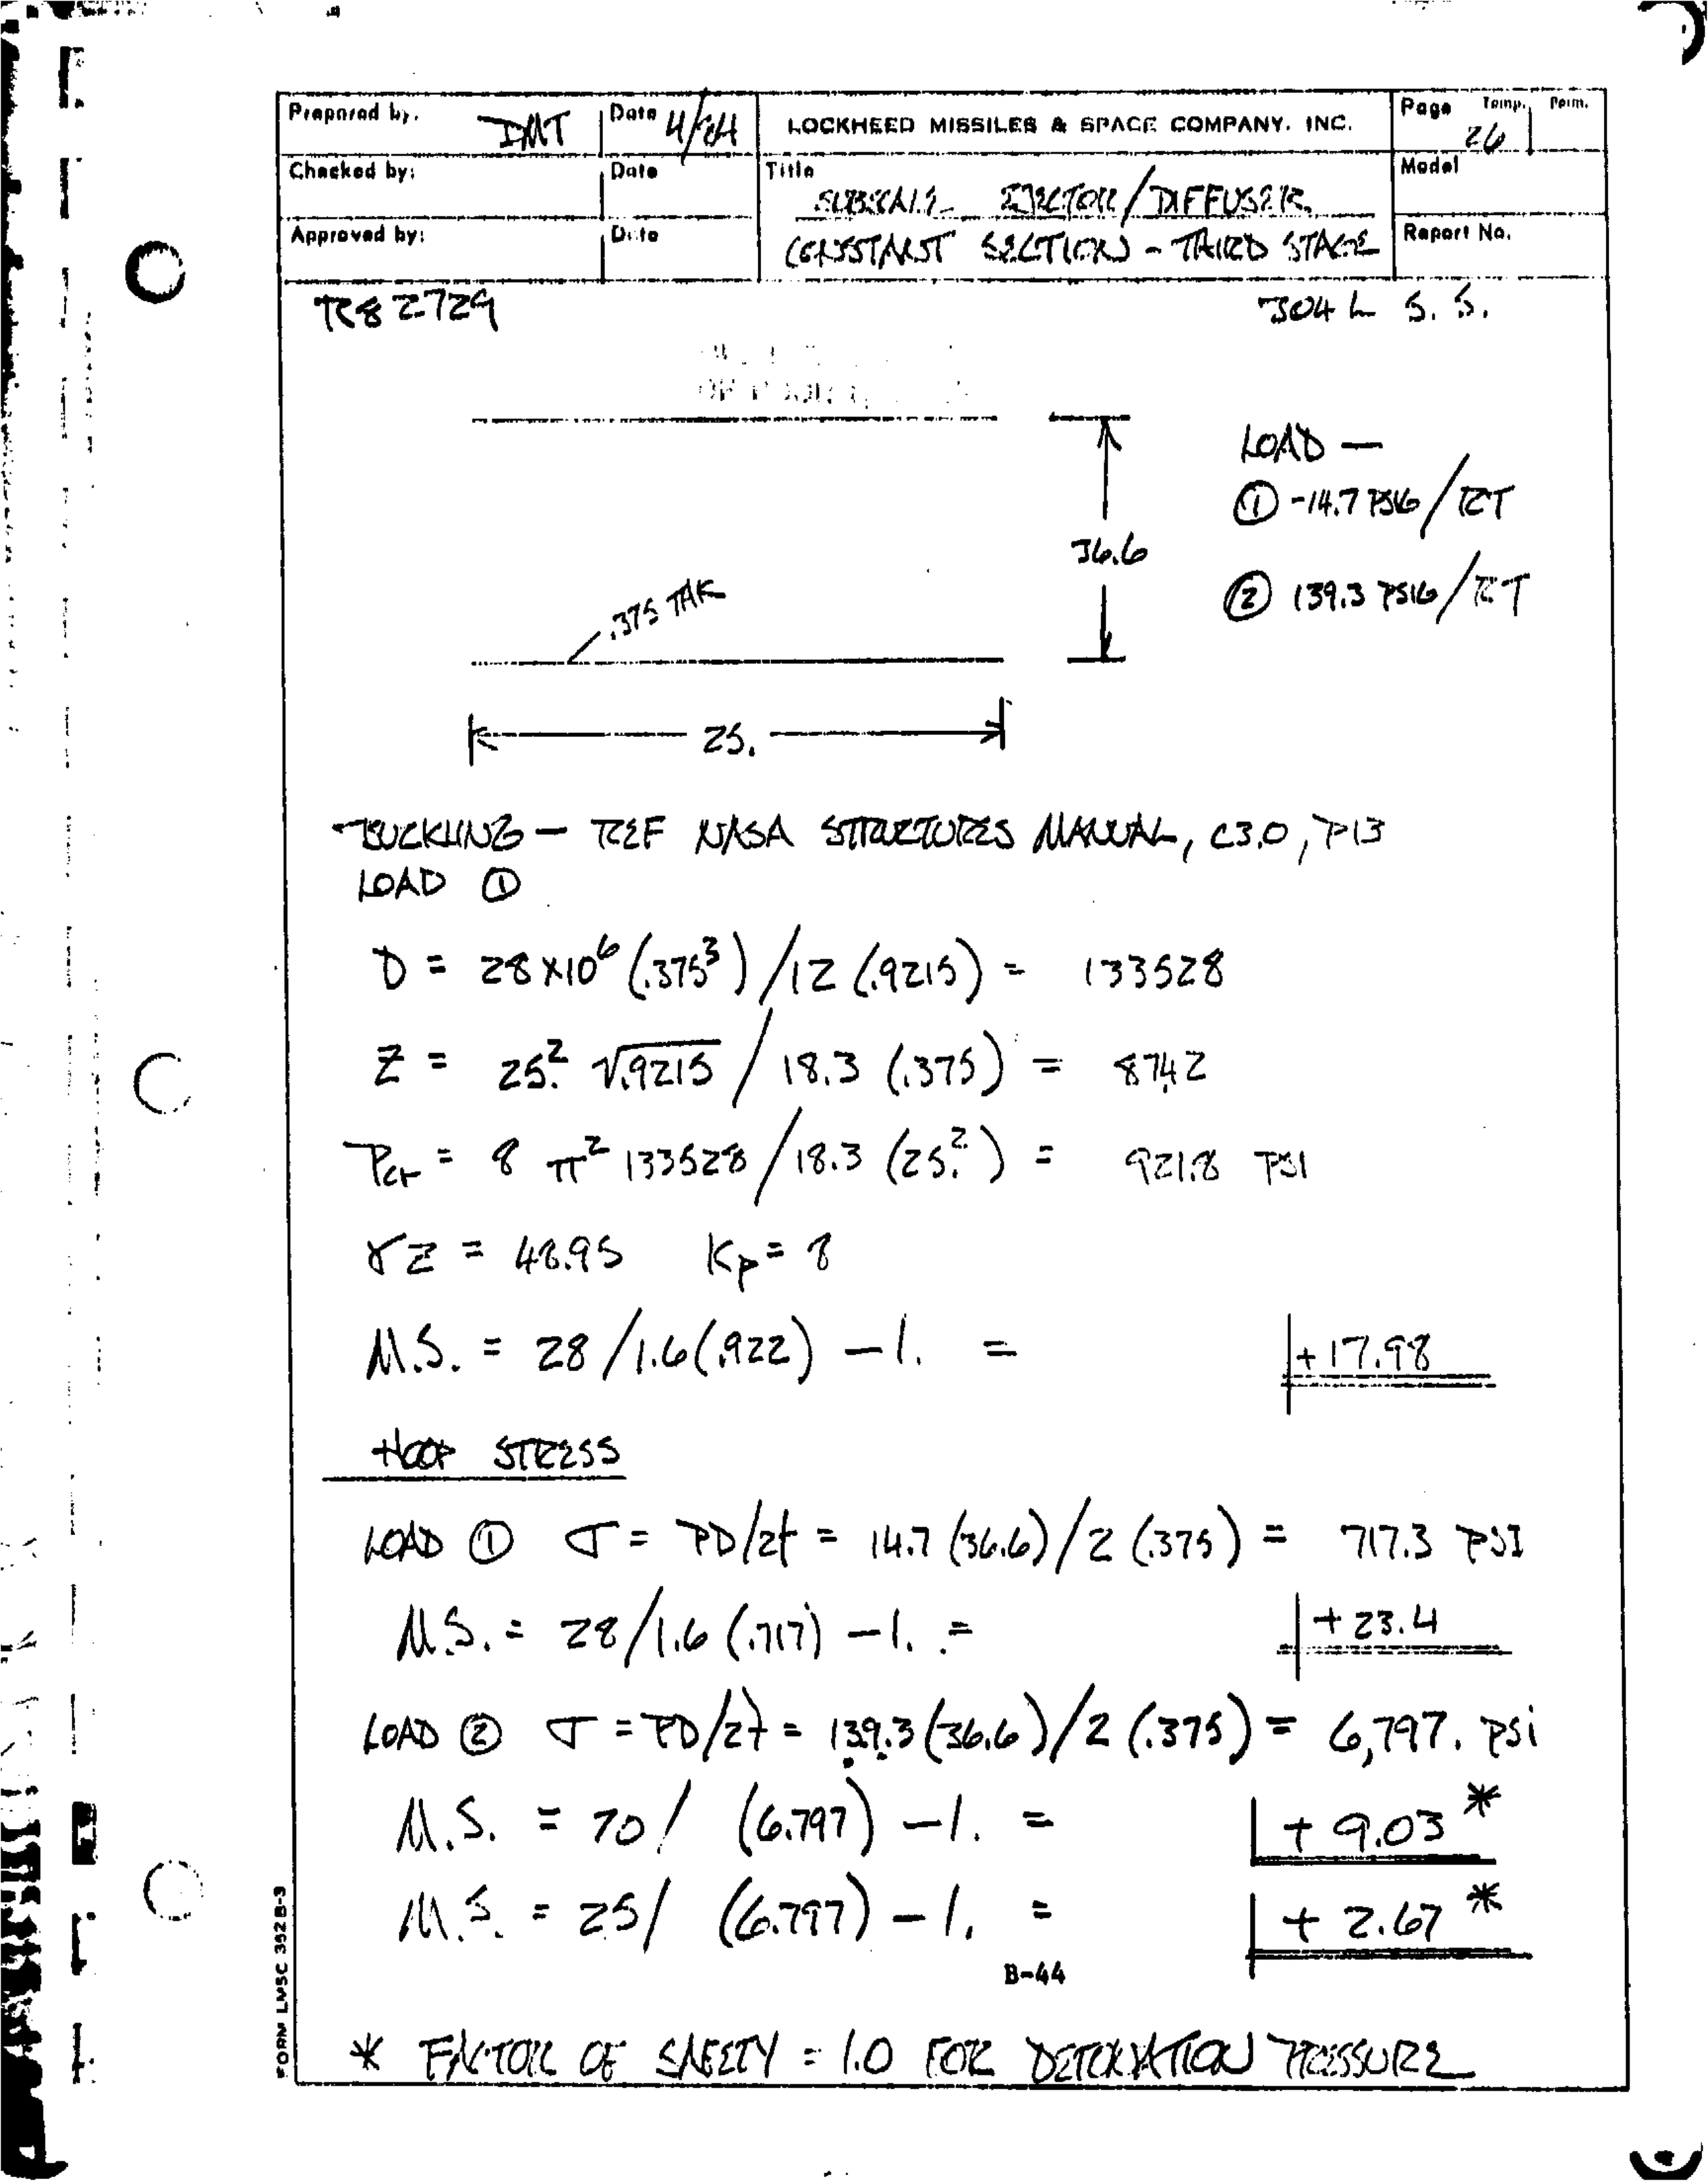 Prepared by: DMT Date 4/84 LOCKHEED MISSILES & SPACE COMPANY, INC. Page Temp. Perm.
26
Checked by: Date Title Model
SUBSCALE EJECTOR/DIFFUSER
Approved by: Date CONSTANT SECTION - THIRD STAGE Report No.
R82729 304L S.S.
LOAD —
① -14.7 PSIG/RT
36.6
② 139.3 PSIG/RT
.375 TAK
25.
BUCKLING — REF NASA STRUCTURES MANUAL, C3.0, P13
LOAD ①
D = 28 X10⁶ (.375³) / 12 (.9215) = 133528
Z = 25.² √.9215 / 18.3 (.375) = 87.42
Pcr = 8 π² 133528 / 18.3 (25.²) = 921.8 PSI
γZ = 48.95 Kp = 8
M.S. = 28 / 1.6 (.922) - 1. = +17.98
HOOP STRESS
LOAD ① σ = PD/2t = 14.7 (36.6) / 2 (.375) = 717.3 PSI
M.S. = 28 / 1.6 (.717) - 1. = +23.4
LOAD ② σ = PD/2t = 139.3 (36.6) / 2 (.375) = 6,797. psi
M.S. = 70 / (6.797) - 1. = +9.03 *
M.S. = 25 / (6.797) - 1. = +2.67 *
B-44
* FACTOR OF SAFETY = 1.0 FOR DETONATION PRESSURE
FORM LMSC 352B-3